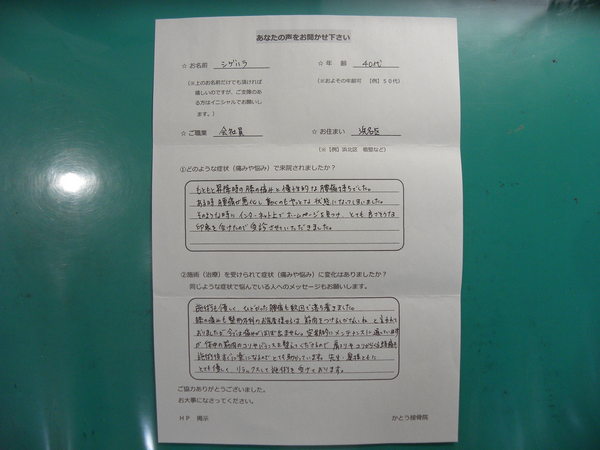 あなたの声をお聞かせ下さい
☆お名前 シゲハラ ☆年 齢 40代
(※上のお名前だけでも頂ければ
嬉しいのですが、ご支障のあ
る方はイニシャルでお願いし
ます。)
(※およその年齢可 【例】50代)
☆ご職業 会社員 ☆お住まい 浜名区
(※【例】浜北区 横取など)
①どのような症状(痛みや悩み)で来院されましたか?
もともと昇降時の膝の痛みと慢性的な腰痛持ちでした。
ある時腰痛が悪化し動くのもやっとな状態になってしまいました。
そのような時にインターネット上でホームページを見つけ、とても良さそうな
印象を受けたので受診させていただきました。
②施術(治療)を受けられて症状(痛みや悩み)に変化はありましたか?
同じような症状で悩んでいる人へのメッセージもお願いします。
施術は優しく、ひどかった腰痛も数回で落ち着きました。
膝の痛みも整形外科のお医者様からは筋肉をつけるしかないね と言われて
おりましたが今では痛みがほぼ出ません。定期的にメンテナンスに通っています
が 体中の筋肉のコリやバランスを整えてくださるので 肩こりやコリからくる頭痛も
施術後すぐに楽になるのでとても助かっています。先生・奥様ともに
とても優しく リラックスして施術を受けております。
ご協力ありがとうございました。
お大事になさってください。
HP 掲示 かとう接骨院